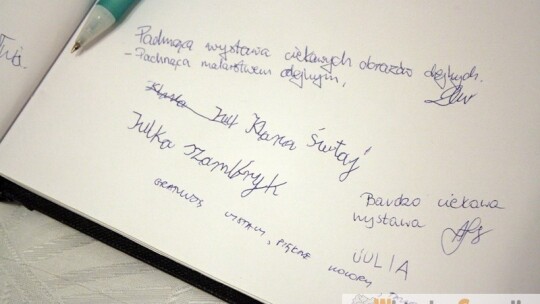 Pachnąca wystawa ciekawych obrazów olejnych.
- Pachnąca malarstwem olejnym.
Klara Świtaj
Julka Szambryk
Bardzo ciekawa
wystawa
GRATULUJĘ WYSTAWY, PIĘKNE KOLORY
JULIA